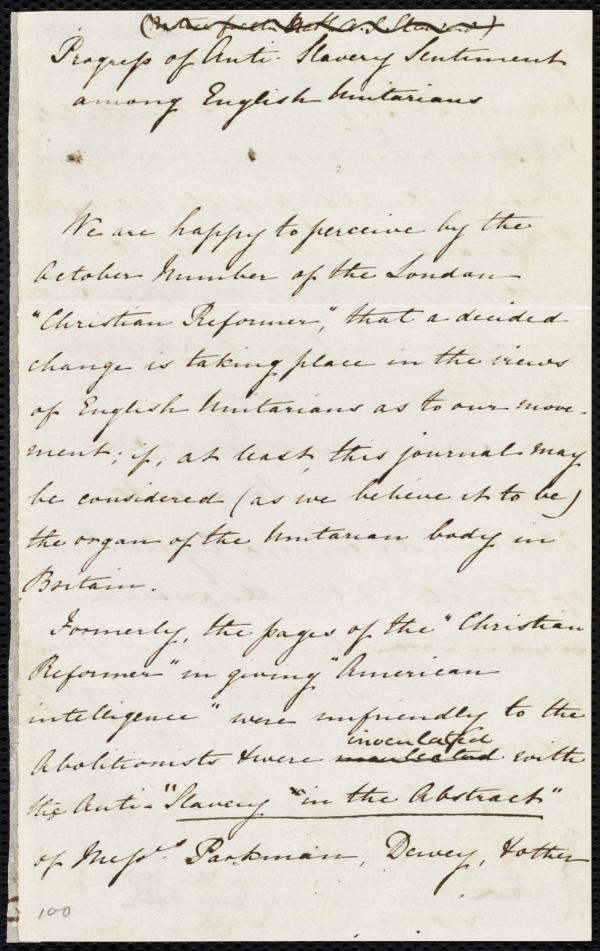 Progress of Anti-Slavery Sentiment
among English Unitarians
We are happy to perceive by the
October Number of the London
"Christian Reformer", that a decided
change is taking place in the views
of English Unitarians as to our move-
ment; if, at least, this journal may
be considered (as we believe it to be)
the organ of the Unitarian body in
Britain.
Formerly, the pages of the "Christian
Reformer" in giving "American
intelligence" were unfriendly to the
inoculated
Abolitionists & were with
the Anti-"Slavery "in the Abstract"
of Messrs. Parkman, Dewey, & other
100